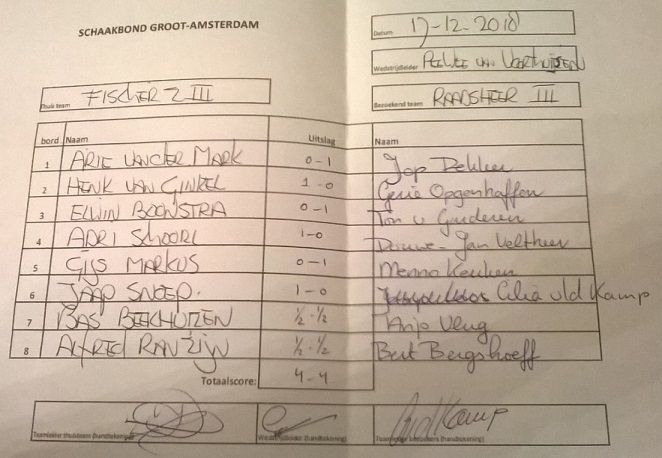 SCHAAKBOND GROOT-AMSTERDAM
Datum 17-12-2018
Wedstrijdleider
Thuis team FISCHER Z III
Bezoekend team RAADSHEER III
bord Naam Uitslag Naam
1 ARIE VAN DER MARK 0-1 Jop Dekker
2 HENK VAN GINKEL 1-0 Gerie Opgenhaffen
3 ELWIN BOONSTRA 0-1 Ton v Garderen
4 ADRI SCHOORL 1-0 Douwe-Jan Veltheer
5 GIJS MARKUS 0-1 Menno Keuken
6 JAAP SNOEP. 1-0 Celia vld Kamp
7 BAS BEEKHUIZEN ½-½ Anjo Vlug
8 ALFRED RANZIJN ½-½ Bert Bergshoeff
Totaalscore: 4-4
Teamleider thuisteam (handtekening) Wedstrijdleider (handtekening) Teamleider bezoekers (handtekening)
vldKamp